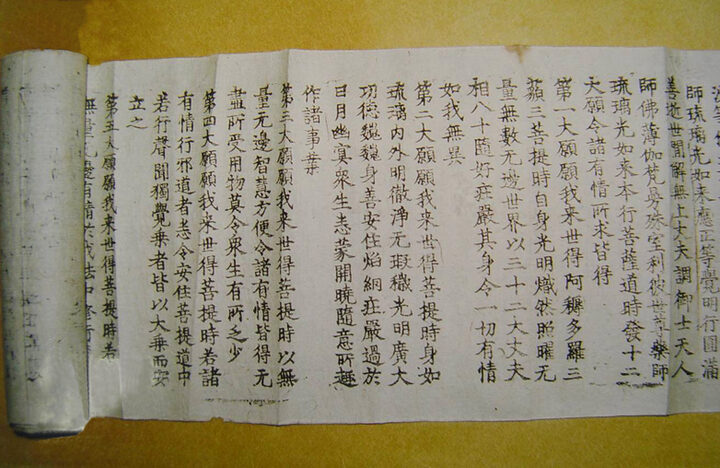 師琉璃光如来應正等覺明行圓滿
善逝世間解無上丈夫調御士天人
師佛薄伽梵曼殊室利彼世尊藥師
琉璃光如来本行菩薩道時發十二
大願令諸有情所求皆得
第一大願願我来世得阿耨多羅三
藐三菩提時自身光明熾然照曜无
量無數无邊世界以三十二大丈夫
相八十随好莊嚴其身令一切有情
如我無異
第二大願願我来世得菩提時身如
琉璃内外明徹淨无瑕穢光明廣大
功德巍巍身善安住焰網莊嚴過於
日月幽冥眾生悉蒙開曉隨意所趣
作諸事業
第三大願願我来世得菩提時以無
量无邊智慧方便令諸有情皆得无
盡所受用物莫令眾生有所乏少
第四大願願我来世得菩提時若諸
有情行邪道者悉令安住菩提道中
若行聲聞獨覺乘者皆以大乘而安
立之
第五大願願我来世得菩提時若
無量无邊有情於我法中